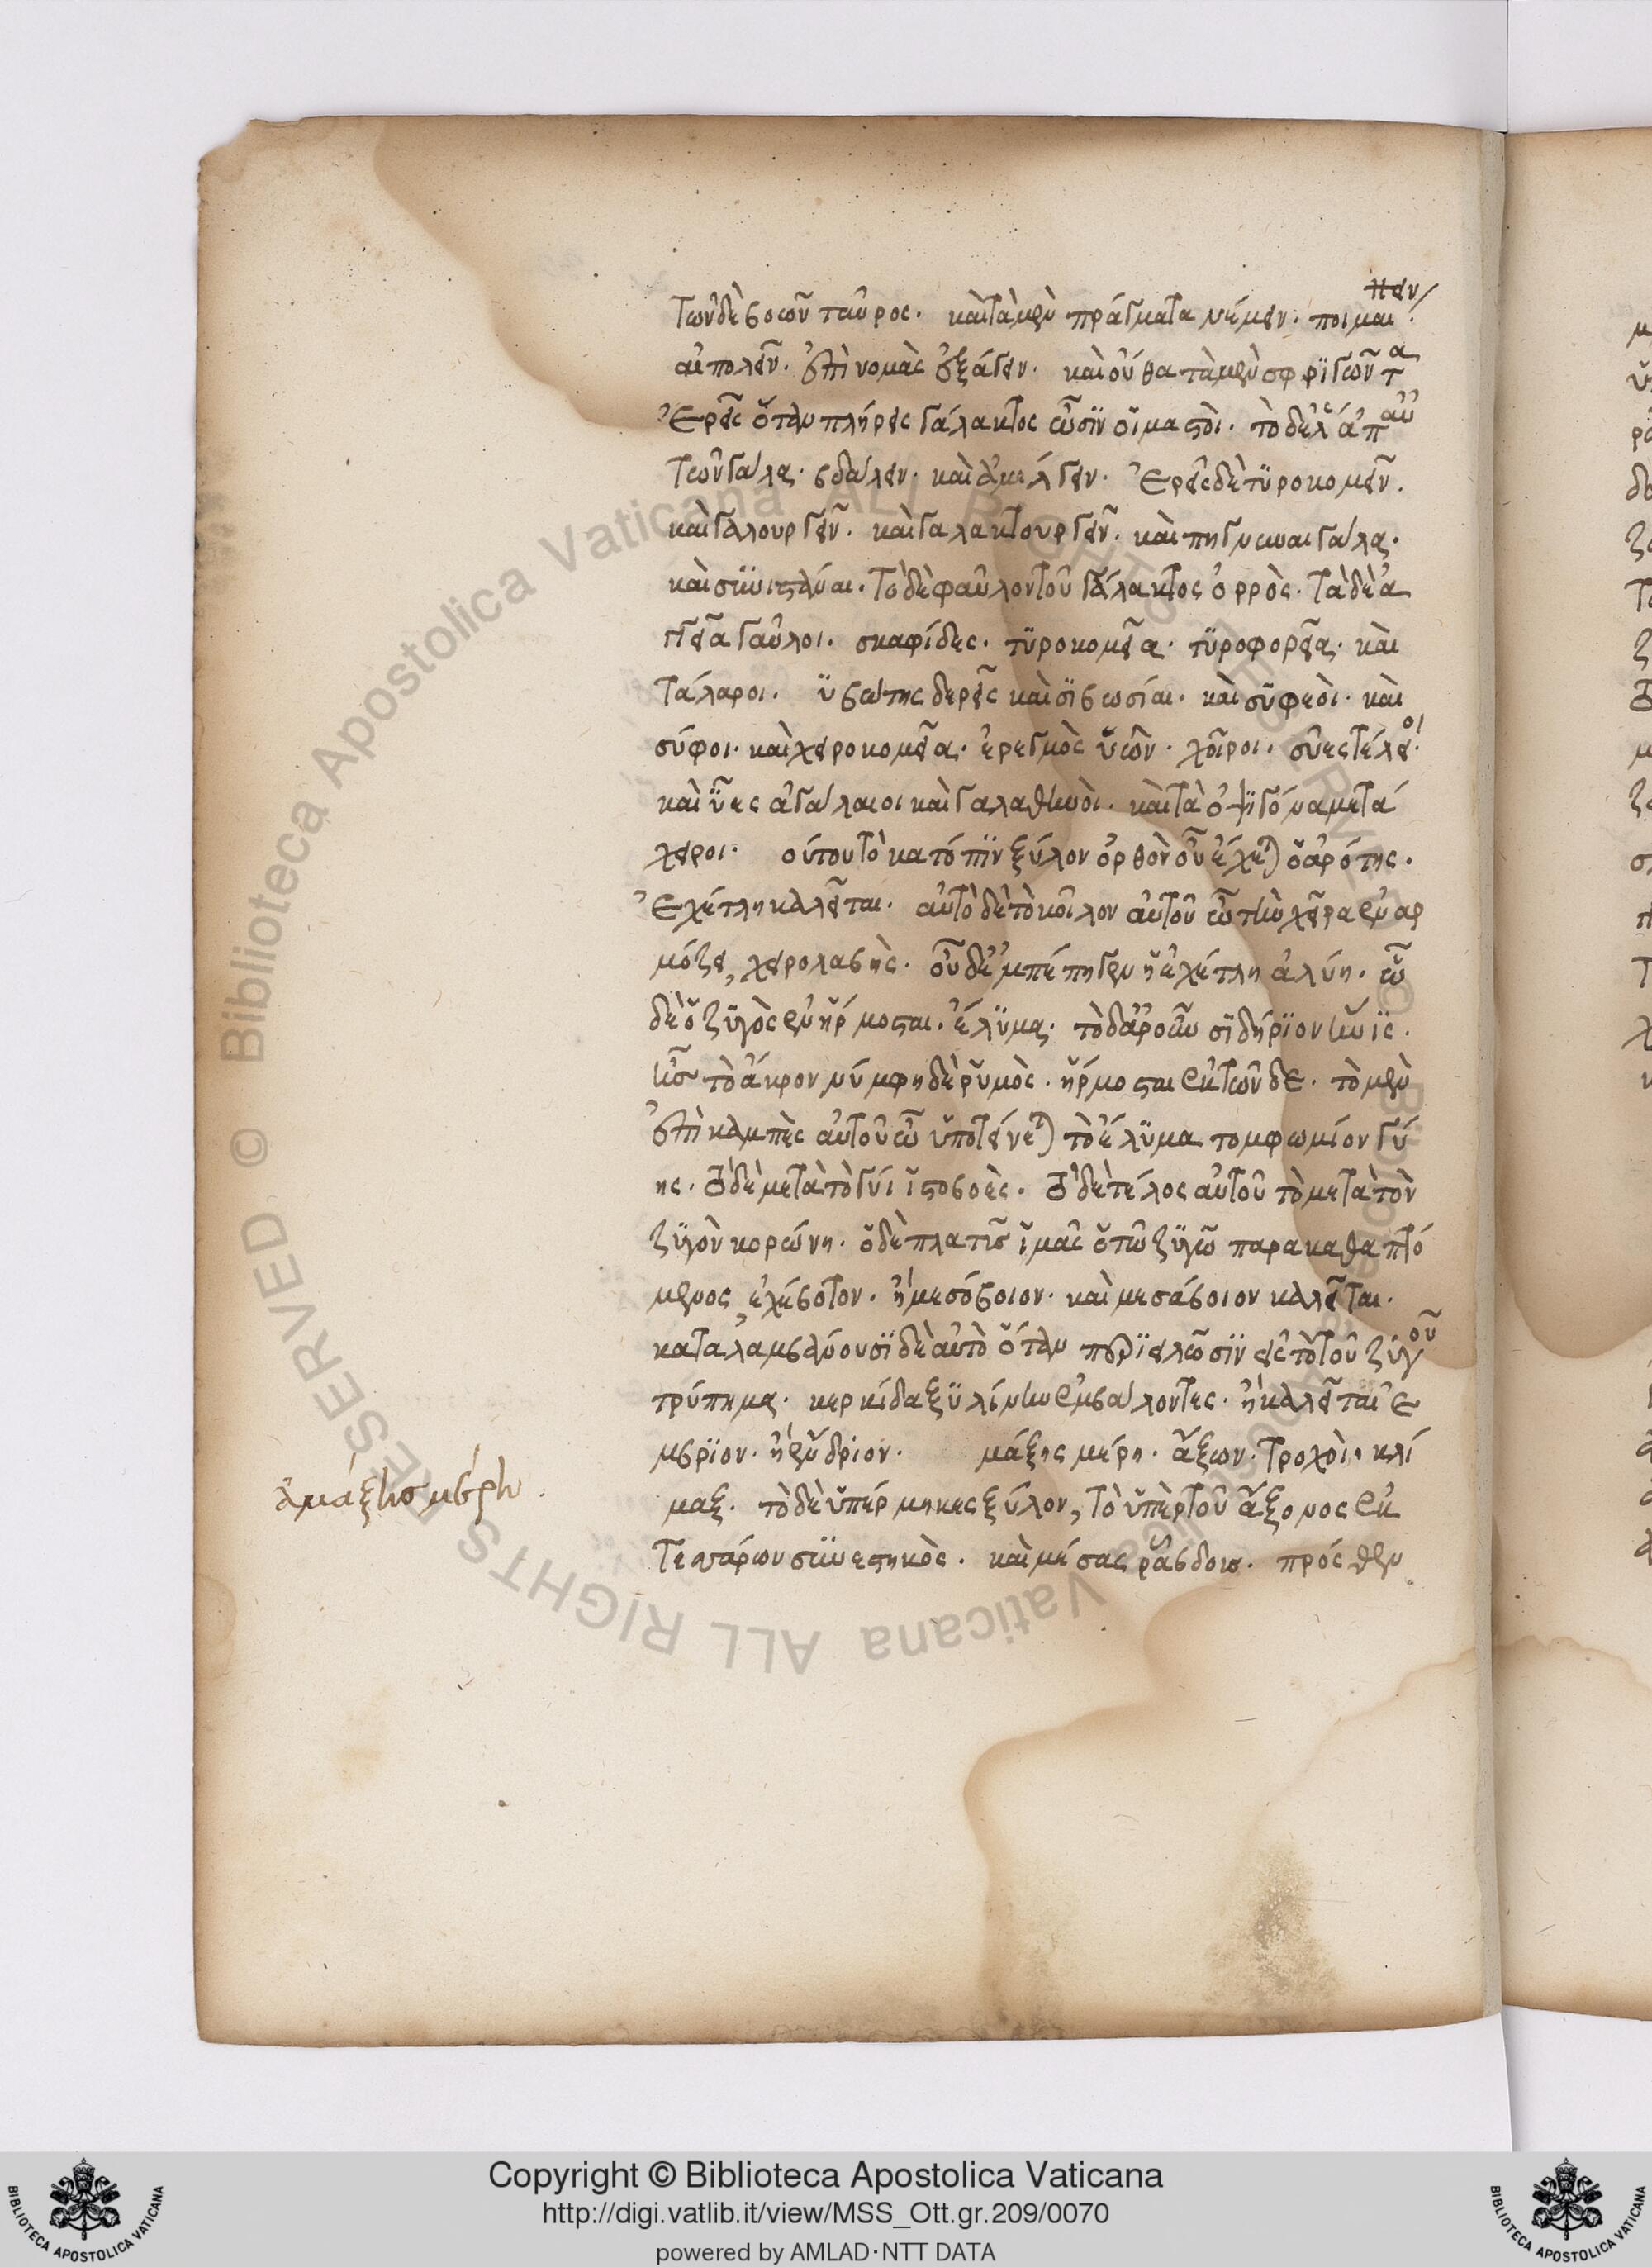 τῶν δὲ βοῶν ταῦρος. καὶ τὰ μὲν πράγματα νέμειν. ποιμαίνειν.
αἰπολεῖν. ἐπὶ νομὰς ἐξάγειν. καὶ οὔθατα μὲν σφριγῶντα
ἐρεῖς ὅταν πλήρεις γάλακτος ὦσιν οἱ μαστοί. τὸ δὲ ἀπ αὐ
τῶν γάλα. βδάλειν. καὶ ἀμέλγειν. ἐρεῖς δὲ τυροκομεῖν.
καὶ γαλουργεῖν. καὶ γαλακτουργεῖν. καὶ πηγνύναι γάλα.
καὶ συνιστάναι. τὸ δὲ φαῦλον τοῦ γάλακτος ὀρρὸς. τὰ δὲ ἀ
γγεῖα γαῦλοι. σκαφίδες. τυροκομεῖα. τυροφορεῖα. καὶ
τάλαροι. ὑβώτης δ ἐρεῖς καὶ συβωσίαι. καὶ συφεοὶ. καὶ
σύφοι. καὶ χεροκομεῖα. ἐρεγμὸς ὑῶν. χοῖροι. σύες τέλειοι.
καὶ ὕες ἀγάλακοι καὶ γαλαθηνοὶ. καὶ τὰ ὀψίγονα μετά
χεροι. οὕτου τὸ κατόπιν ξύλον ὀρθὸν οὗ ἔχεται ὁ ἀρότης.
ἐχέτλη καλεῖται. αὐτὸ δὲ τὸ κοῖλον αὐτοῦ ᾧ τὴν χεῖρα ἐναρ
μόζει, χειρολαβὴς. οὗ δὲ ἐμπέπηγεν ἡ ἐχέτλη ἀλύη. ᾧ
δὲ ὁ ζυγὸς ἐνήρμοσται. ἔλυμα. τὸ δ ἀροῦν σιδήριον ὕνις.
ἧς τὸ ἄκρον νύμφη δὲ ῥυμὸς. ἥρμοσται ἐκ τῶν δε. τὸ μὲν
ἐπικαμπὲς αὐτοῦ ᾧ ὑποτείνεται τὸ ἔλυμα τομφωμίον γύ
ης. τὸ δὲ μετὰ τὸ γύι ἱστοβοὲς. τὸ δὲ τέλος αὐτοῦ τὸ μετὰ τὸν
ζυγὸν κορώνη. ὁ δὲ πλατὺς ἱμὰς ὁ τῷ ζυγῷ παρακαθαπτό
μενος, ἐχέβοιον. ἢ μεσόβοιον. καὶ μεσάβοιον καλεῖται.
καταλαμβάνουσι δὲ αὐτὸ ὅταν περιελῶσιν εἰς τὸ τοῦ ζυγοῦ
τρύπημα. κερκίδα ξυλίνην ἐμβάλοντες. ἢ καλεῖται ἔ
μβριον. ἢ ἔνδριον. μάξης μέρη. ἄξων. τροχοὶ. κλί
μαξ. τὸ δὲ ὑπέρμηκες ξύλον, τὸ ὑπὲρ τοῦ ἄξονος ἐκ
τεσσάρων συνεστηκὸς. καὶ μέσας ῥάβδοις. πρόσθεν
ἁμάξης μέρη.
Copyright © Biblioteca Apostolica Vaticana
http://digi.vatlib.it/view/MSS_Ott.gr.209/0070
powered by AMLAD·NTT DATA